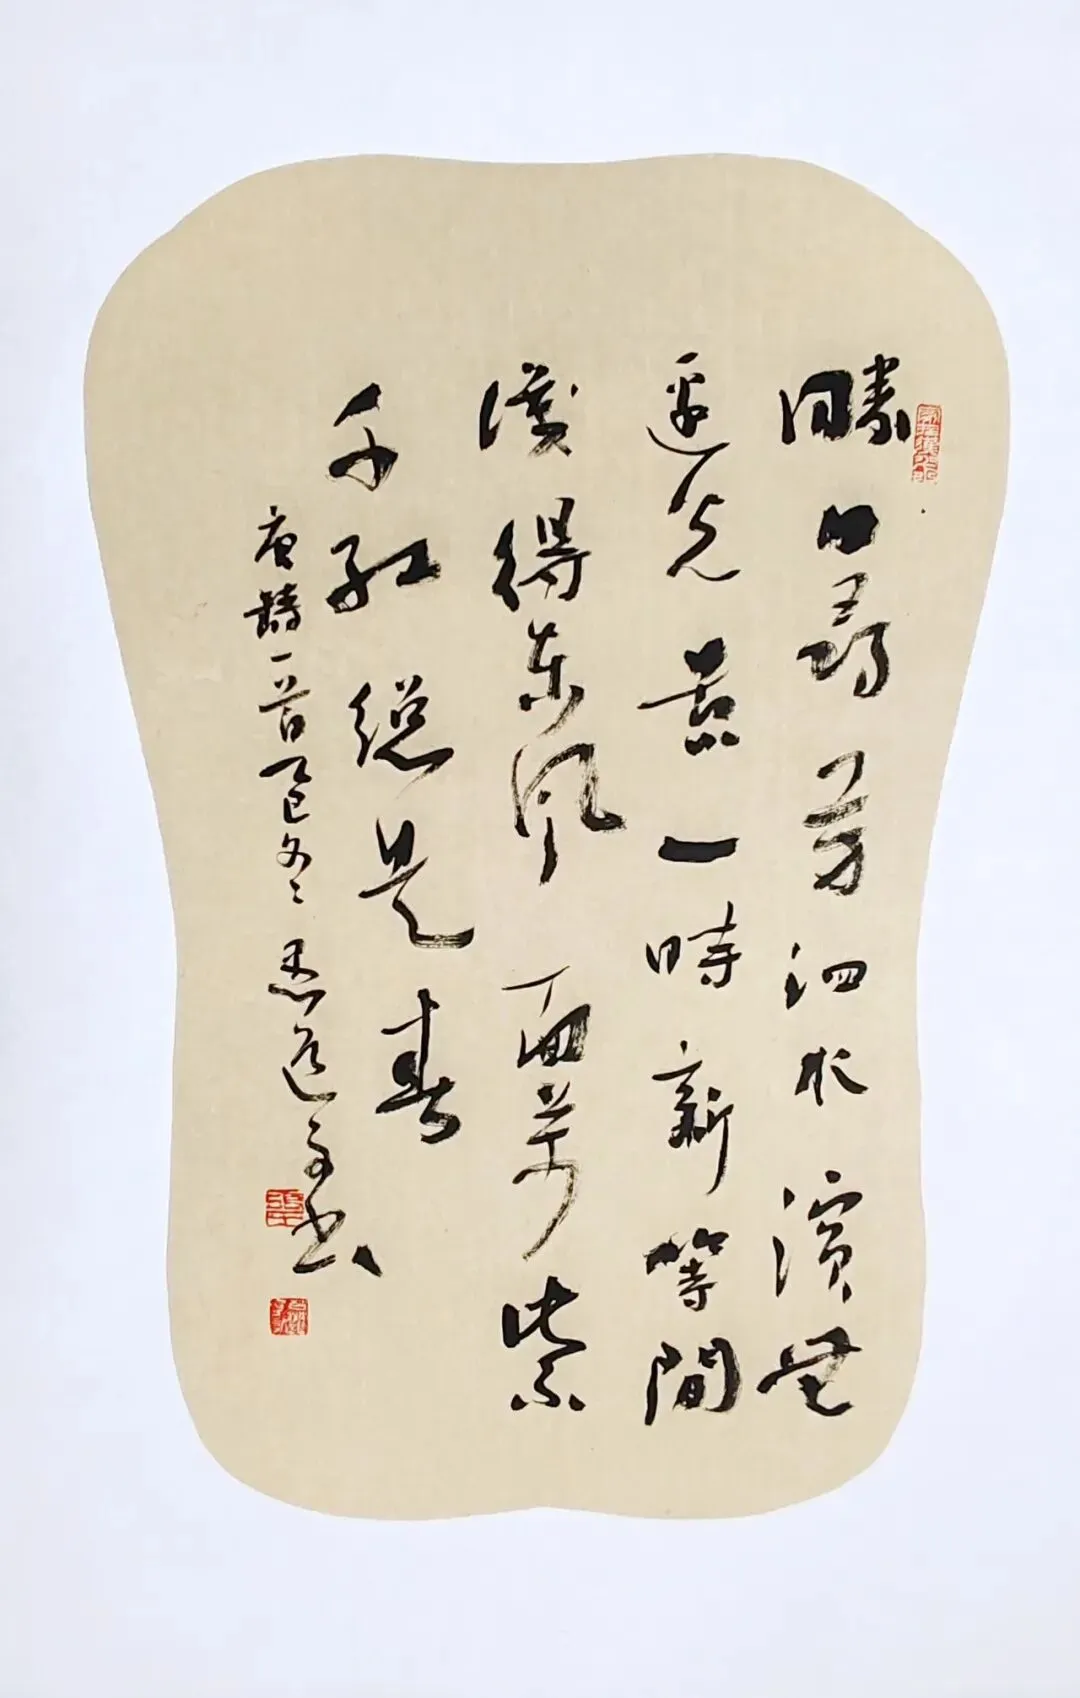 勝日尋芳泗水濱無
邊光景一時新等間
識得東風面萬紫
千紅總是春
唐詩一首乙巳冬書